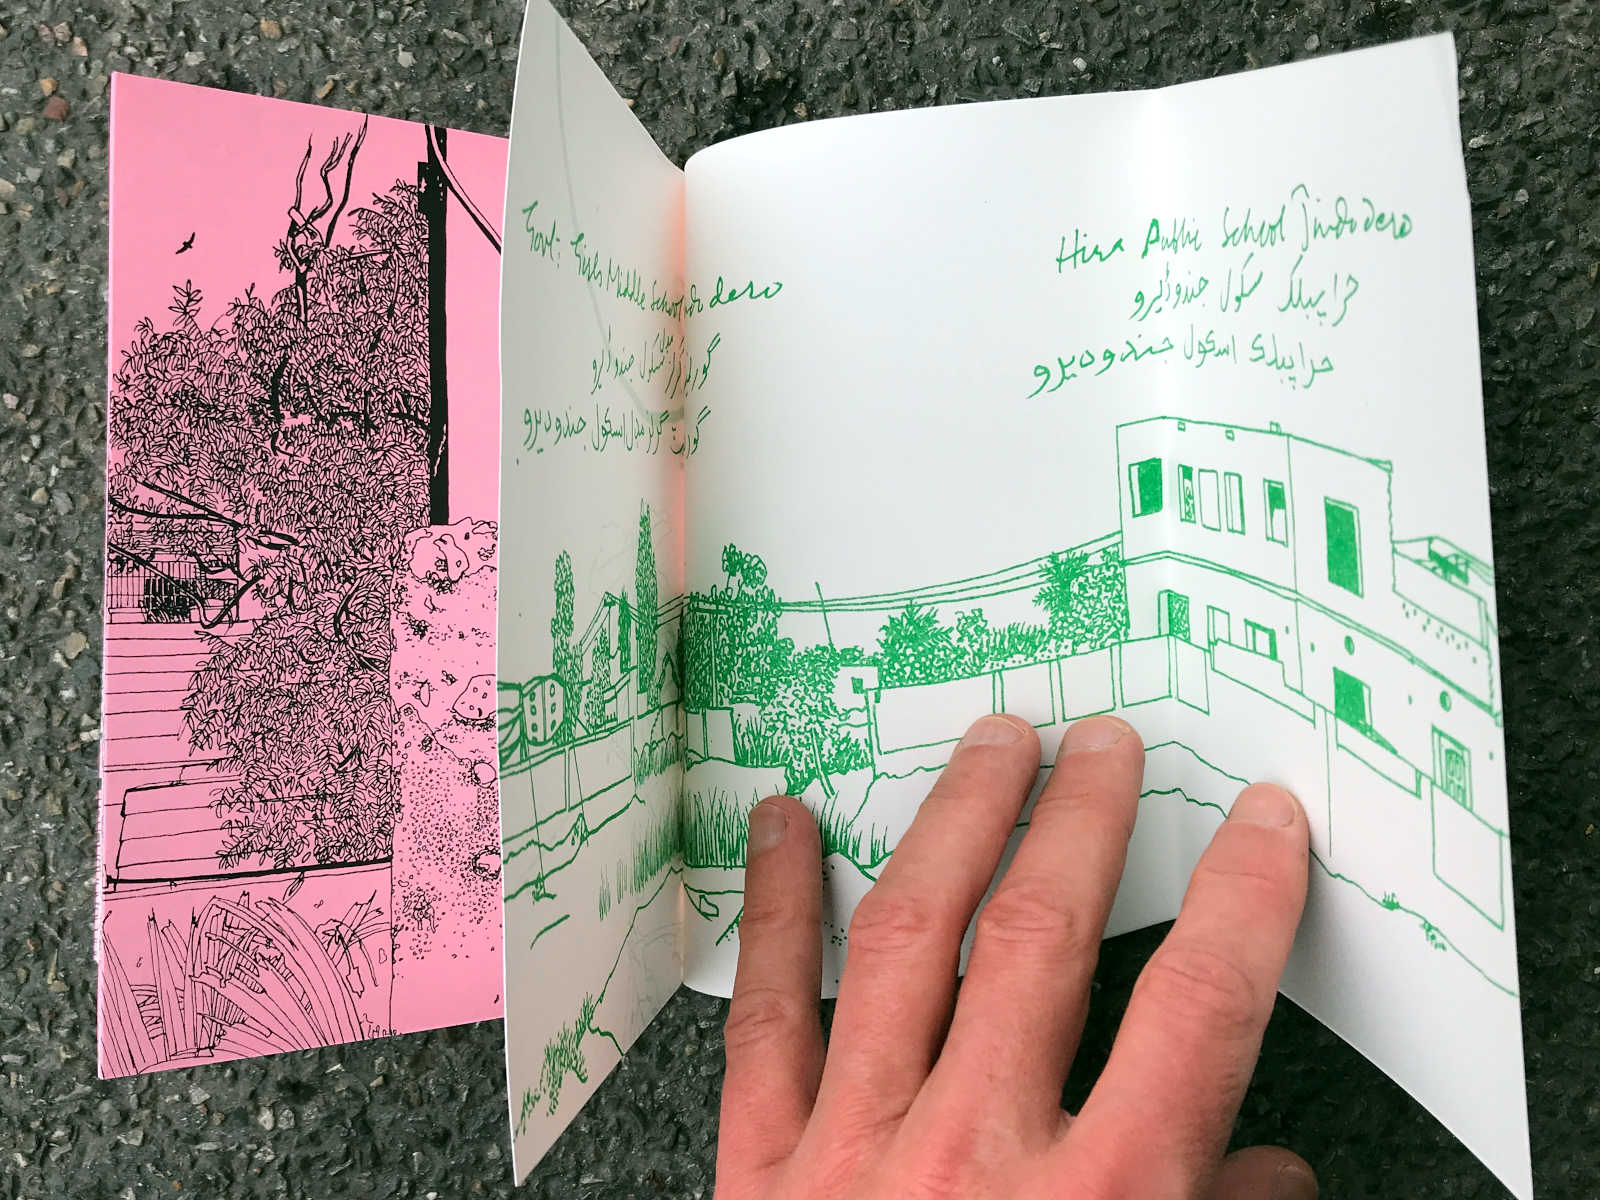 Govt: Girls Middle School Jindo dero
گورنمنٽ گرلز مڊل سکول جندو ڈیرو
گورنمنٽ گرلز مڊل اسڪول جندو ديرو
Hira Public School Jindo dero
حرا پبلک سکول جندو ڈیرو
حرا پبلڪ اسڪول جندو ديرو